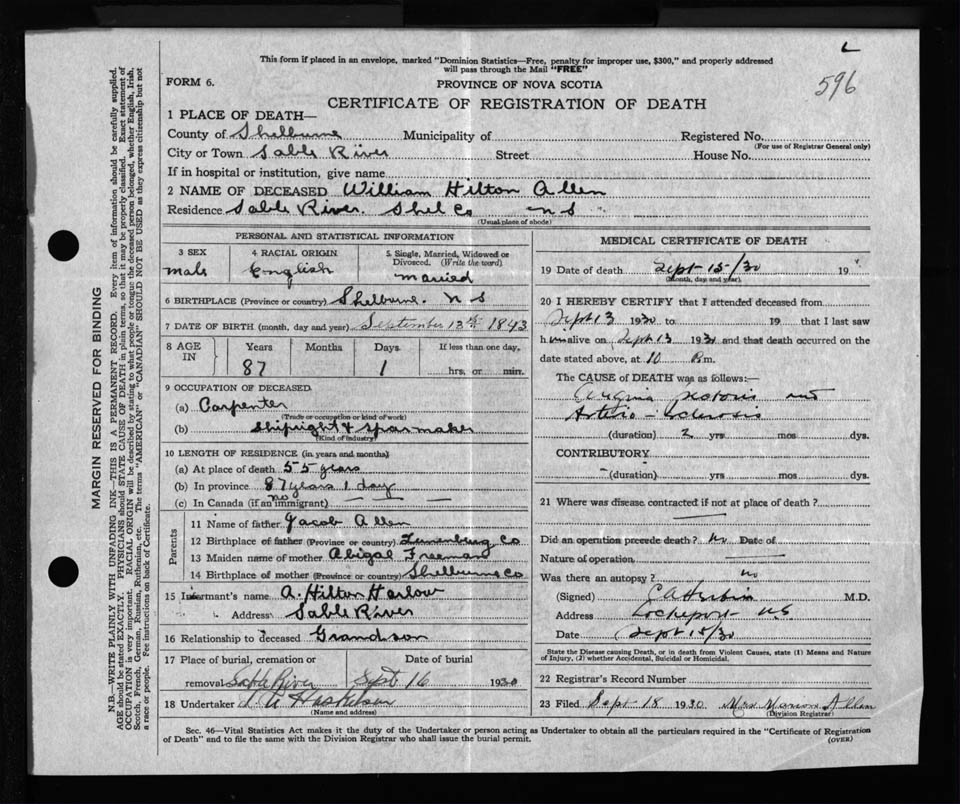 L
596
This form if placed in an envelope, marked "Dominion Statistics—Free, penalty for improper use, $300," and properly addressed
will pass through the Mail "FREE"
FORM 6.
PROVINCE OF NOVA SCOTIA
CERTIFICATE OF REGISTRATION OF DEATH
1 PLACE OF DEATH—
County of Shelburne Municipality of Registered No.
(For use of Registrar General only)
City or Town Sable River Street House No.
If in hospital or institution, give name
2 NAME OF DECEASED William Hilton Allen
Residence Sable River. Shel Co N S
(Usual place of abode)
PERSONAL AND STATISTICAL INFORMATION
3 SEX 4 RACIAL ORIGIN 5 Single, Married, Widowed or
Divorced. (Write the word)
male English married
6 BIRTHPLACE (Province or country) Shelburne. N S
7 DATE OF BIRTH (month, day and year) September 13th 1843
8 AGE IN Years Months Days If less than one day,
87 1 hrs. or min.
9 OCCUPATION OF DECEASED
(a) Carpenter
(Trade or occupation or kind of work)
(b) Shipright & spar maker
(Kind of industry)
10 LENGTH OF RESIDENCE (in years and months)
(a) At place of death 55 years
(b) In province 87 years 1 day
(c) In Canada (if an immigrant) no — —
Parents
11 Name of father Jacob Allen
12 Birthplace of father (Province or country) Lunenburg Co
13 Maiden name of mother Abigal Freeman
14 Birthplace of mother (Province or country) Shelburne Co
15 Informant's name A. Hilton Harlow
Address Sable River
16 Relationship to deceased Grandson
17 Place of burial, cremation or Date of burial
removal Sable River Sept 16 1930
18 Undertaker
(Name and address)
MEDICAL CERTIFICATE OF DEATH
19 Date of death Sept-15-/30 19
(Month, day and year)
20 I HEREBY CERTIFY that I attended deceased from
Sept 13 1930 to 19 that I last saw
him alive on Sept 13 1930 and that death occurred on the
date stated above, at 10 P.m.
The CAUSE of DEATH was as follows:—
Angina pectoris
Arterio-sclerosis
(duration) 2 yrs mos dys.
CONTRIBUTORY
(duration) yrs mos dys.
21 Where was disease contracted if not at place of death?
Did an operation precede death? no Date of
Nature of operation
Was there an autopsy? no
(Signed) M.D.
Address Lockeport N.S.
Date Sept 15/30
State the Disease causing Death, or in death from Violent Causes, state (1) Means and Nature
of Injury, (2) whether Accidental, Suicidal or Homicidal.
22 Registrar's Record Number
23 Filed Sept-18 1930 Mrs Allen
(Division Registrar)
Sec. 46—Vital Statistics Act makes it the duty of the Undertaker or person acting as Undertaker to obtain all the particulars required in the "Certificate of Registration
of Death" and to file the same with the Division Registrar who shall issue the burial permit.
(OVER)
MARGIN RESERVED FOR BINDING
N.B.—WRITE PLAINLY WITH UNFADING INK—THIS IS A PERMANENT RECORD. Every item of information should be carefully supplied.
AGE should be stated EXACTLY. PHYSICIANS should STATE CAUSE OF DEATH in plain terms, so that it may be properly classified. Exact statement of
OCCUPATION is very important. RACIAL ORIGIN will be described by stating to what people or tongue the deceased person belonged, whether English, Irish,
Scotch, French, German, Russian, Ruthenian, etc. The terms "AMERICAN" or "CANADIAN" SHOULD NOT BE USED as they express citizenship but not
a race or people. See instructions on back of Certificate.